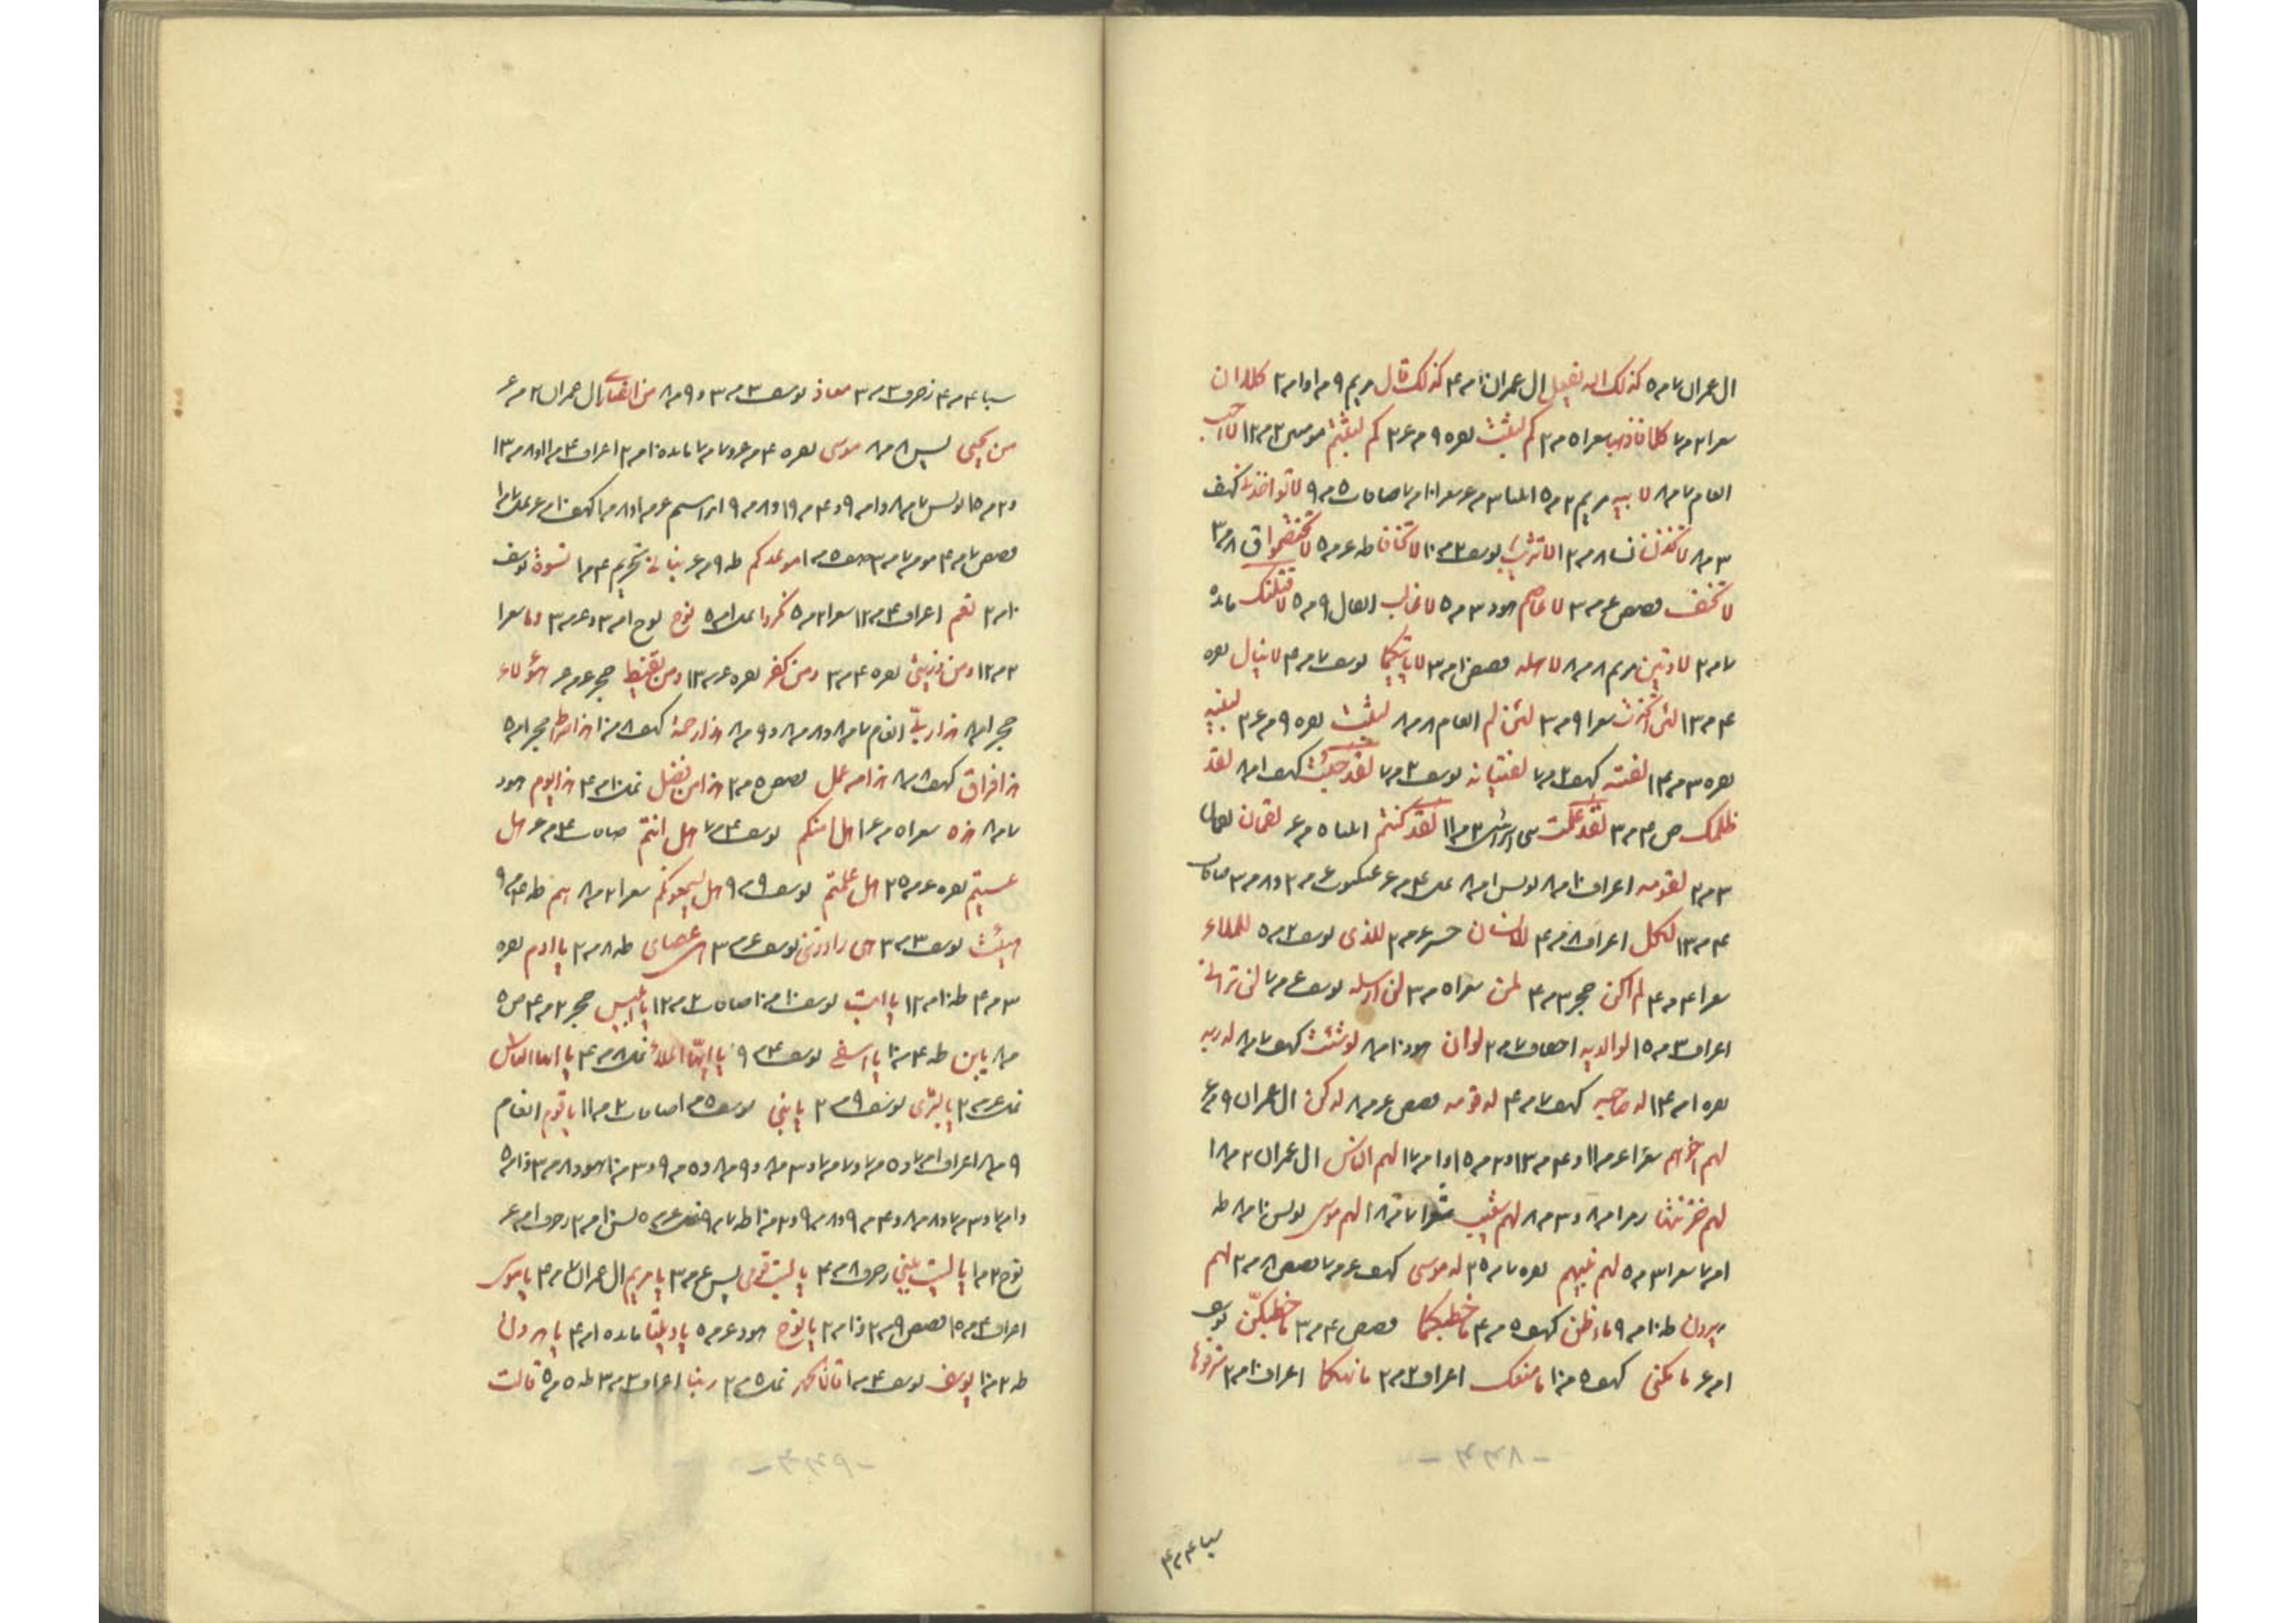 ال عمران ٧ م ٥ كذلك الله يفعل ال عمران ١٠ م ٤ كذلك قال مريم ٩ م ١ و ١ م ٢ كلا ان
سعرا ٢ م ٧ كلا فاذهبا سعرا ٥ م ٢ كم لبثت بقره ٩ م ٤ ٣ كم لبثتم مومنين ٢ م ١٢ لا احب
انعام ٧ م ٨ لابيه مريم ٢ م ٥ انبيا ٣ م ٤ سعرا ١٠ م ٧ صافات ٥ م ٩ لا تواخذني كهف
٣ م ٨ لاتخذن نسا ٨ م ١٢ لا تثريب يوسف ٢ م ١٠ لا تخافا طه ٤ م ٥ لا تختصموا ق ٨ م ٣
لا تخف قصص ٤ م ٣ لا عاصم هود ٣ م ٥ لا غالب انفال ٩ م ٥ لاقتلنك مائده
٧ م ٢ لاوتين مريم ٨ م ٨ لاهله قصص ١٠ م ٣ لا ياتيكما يوسف ٧ م ٤ لا ينال بقره
٤ م ١٣ لئن اتخذت سعرا ٩ م ٣ لئن لم انعام ٨ م ٨ لبثت بقره ٩ م ٤ ٣ لبنيه
بقره ٣ م ١٤ لفته كهف ٢ م ٧ لفتيانه يوسف ٢ م ٧ لقد جئت كهف ١ م ٨ لقد
ظلمك ص ٤ م ٣ لقد علمت بني اسرائيل ٣ م ١١ لقد كنتم انبيا ٥ م ٤ لقمان لقمان
٣ م ٢ لقومه اعراف ١٠ م ٨ يونس ١ م ٨ نمل ٤ م ٤ عنكبوت ٦ م ٢ و ٨ م ٣ صافات
٤ م ١٣ لكل اعراف ٨ م ٤ للانسان حشر ٤ م ٢ للذي يوسف ٢ م ٥ للملاء
سعرا ٤ م ٤ لم اكن حجر ٣ م ٤ لمن سعرا ٥ م ٣ لن ارسله يوسف ٤ م ٧ لن تراني
اعراف ٣ م ١٥ لوالديه احقاف ٧ م ٢ لو ان هود ١٠ م ٨ لو شئت كهف ٧ م ٨ له ربه
بقره ١ م ١٤ له صاحبه كهف ٧ م ٤ له قومه قصص ٤ م ٨ له كن ال عمران ٩ م ٤
لهم اخوهم سعرا ٤ م ١١ و ٤ م ١٣ و ٢ م ١٥ و ١ م ١٧ لهم الناس ال عمران ٢ م ١٨
لهم خزنتها زمر ١ م ٨ و ٣ م ٨ لهم شعيب شعرا ٧ م ١٨ لهم موسى يونس ١٠ م ٨ طه
١ م ٧ سعرا ٣ م ٥ لهم نبيهم بقره ٧ م ٢٥ له موسى كهف ٤ م ٧ قصص ٨ م ٢ لهم
هرون طه ١٠ م ٩ ما اظن كهف ٥ م ٤ ما خطبكما قصص ٤ م ٣ ما خطبكن يوسف
١ م ٤ ما مكني كهف ٥ م ١٠ ما منعك اعراف ٢ م ٢ ما نهيكما اعراف ١٠ م ٢ مترفوها
سبا ٤ م ٤
سبا ٤ م ٤ زخرف ٣ م ٣ معاذ يوسف ٣ م ٣ و ٩ م ٨ من انصاري ال عمران ٢ م ٤
من يحيي يس ٨ م ٨ موسى بقره ٤ م ٤ و ٧ م ٧ مائده ١٠ م ٢ اعراف ٤ م ١١ و ٨ م ١٣
و ٢ م ١٥ يونس ٧ م ٨ و ١ م ٩ و ٤ م ١٩ و ٨ م ٩ ابراهيم ٤ م ١ و ٨ م ١ كهف ١٠ م ٤ نمل ٧ م ١
قصص ٧ م ٤ مومن ٧ م ٣ صف ٥ م ١ موعدكم طه ٩ م ٤ نباني تحريم ٤ م ١ نسوة يوسف
١٠ م ٢ نعم اعراف ٤ م ١٢ سعرا ٢ م ٥ نكروا نمل ١ م ٥ نوح نوح ١ م ٣ و ٤ م ٣ وما سعرا
٢ م ١٢ ومن ذريتي بقره ٤ م ٣ ومن كفر بقره ٤ م ١٣ ومن يقنط حجر ٤ م ٤ هؤلاء
حجر ١ م ٨ هذا ربي انعام ٧ م ٨ و ٨ م ٨ و ٩ م ٨ هذا رحمة كهف ٨ م ١٠ هذا صراط حجر ١ م ٥
هذا فراق كهف ٨ م ٨ هذا من عمل قصص ٥ م ٢ هذا من فضل نمل ١٠ م ٤ هذا يوم هود
٧ م ٨ هذه سعرا ٥ م ٤ ١ هل امنكم يوسف ٤ م ٧ هل انتم صافات ٤ م ٤ هل
عسيتم بقره ٤ م ٢٥ هل علمتم يوسف ٩ م ٩ هل يسمعونكم سعرا ٢ م ٨ هم طه ٤ م ٩
هيت يوسف ٣ م ٣ هي راودتني يوسف ٤ م ٣ هي عصاي طه ٨ م ٢ يا ادم بقره
٣ م ٤ طه ١٠ م ١٢ يا ابت يوسف ١٠ م ١٠ صافات ٢ م ١٢ يا ابليس حجر ٢ م ٤ ص ٥
م ٨ يابن طه ٤ م ١٠ يا اسفى يوسف ٤ م ٩ يا ايها الملأ نمل ٨ م ٤ يا ايها الناس
نمل ٤ م ٢ يا بشرى يوسف ٩ م ٢ يا بني يوسف ٥ م ١ صافات ٢ م ١١ يا قوم انعام
٩ م ٨ اعراف ١ م ٧ و ٥ م ٧ و ٧ م ٧ و ٣ م ٨ و ٩ م ٨ و ٥ م ٩ و ٣ م ١٠ هود ٨ م ٣ و ١٠ م ٥
و ١ م ٧ و ٣ م ٧ و ٨ م ٨ و ٤ م ٩ و ٨ م ٩ و ٢ م ١٠ طه ٧ م ٩ نمل ٤ م ٥ يس ١٠ م ٢ زخرف ١ م ٤
نوح ٢ م ١ يا ليت بيني زخرف ٨ م ٤ يا ليت قومي يس ٤ م ٣ يا مريم ال عمران ٧ م ٤ يا موسى
اعراف ٤ م ١٥ قصص ٩ م ٢ و ١٠ م ٢ يا نوح هود ٤ م ٥ يا ويلتا مائده ١ م ٤ يا هرون
طه ٢ م ١٠ يوسف يوسف ٤ م ١ قالا الحمد نمل ٥ م ٢ ربنا اعراف ٣ م ٣ طه ٥ م ٥ قالت